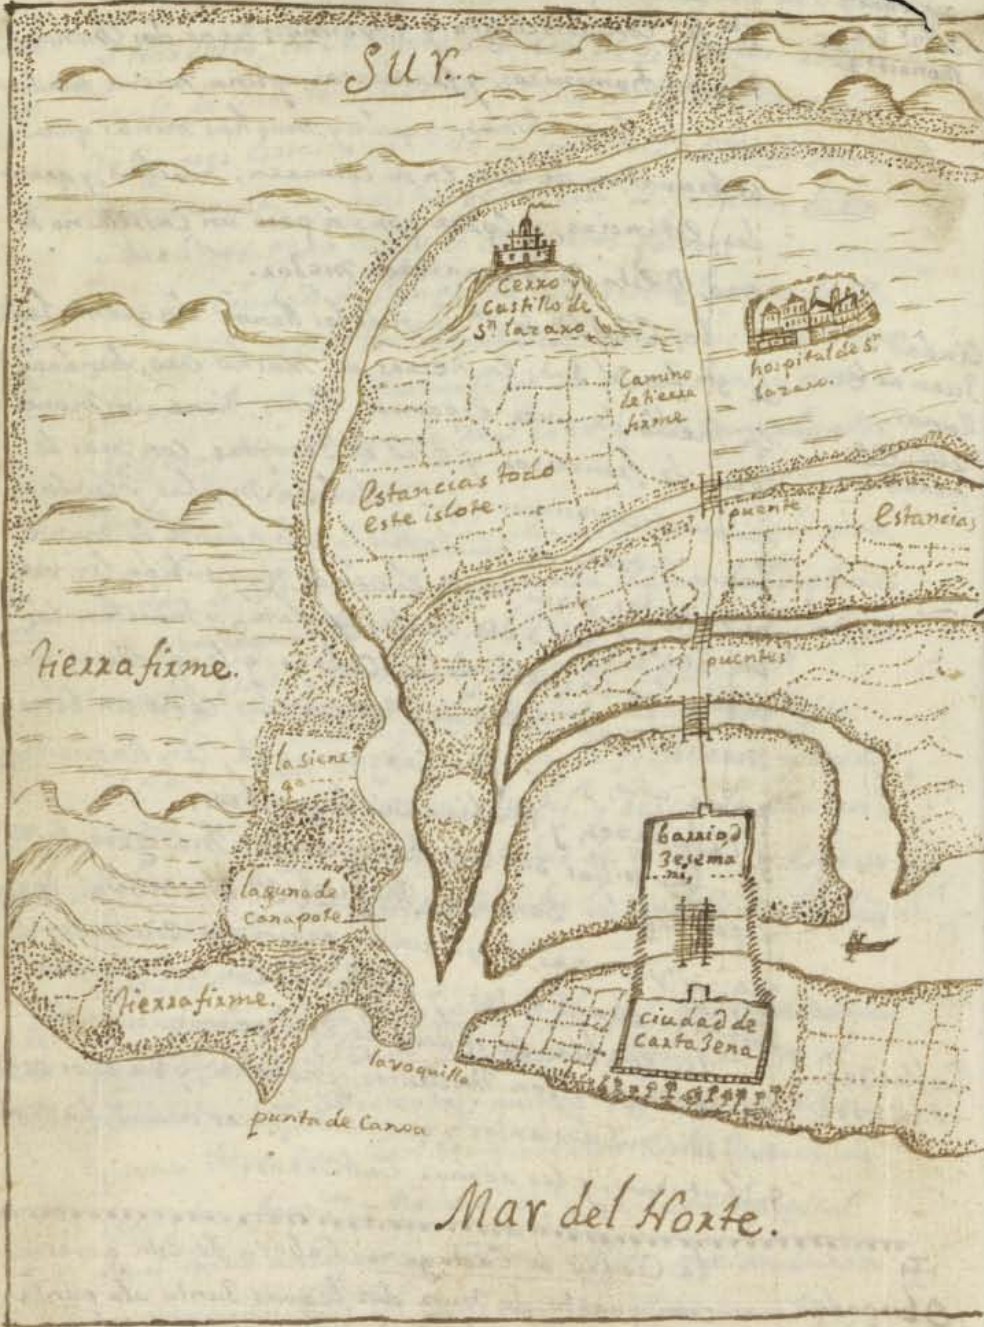 Sur.
Cerro y
Castillo de
Sn lazaro
hospital de Sn
lazaro.
Camino
de tierra
firme
Estancias todo
este islote.
puente
Estancias
tierra firme.
puentes
la siene
ga
barrio d
Jesema
ni,
laguna de
Canapote
tierra firme.
ciudad de
Cartajena
la voquilla
punta de Canoa
Mar del Norte.